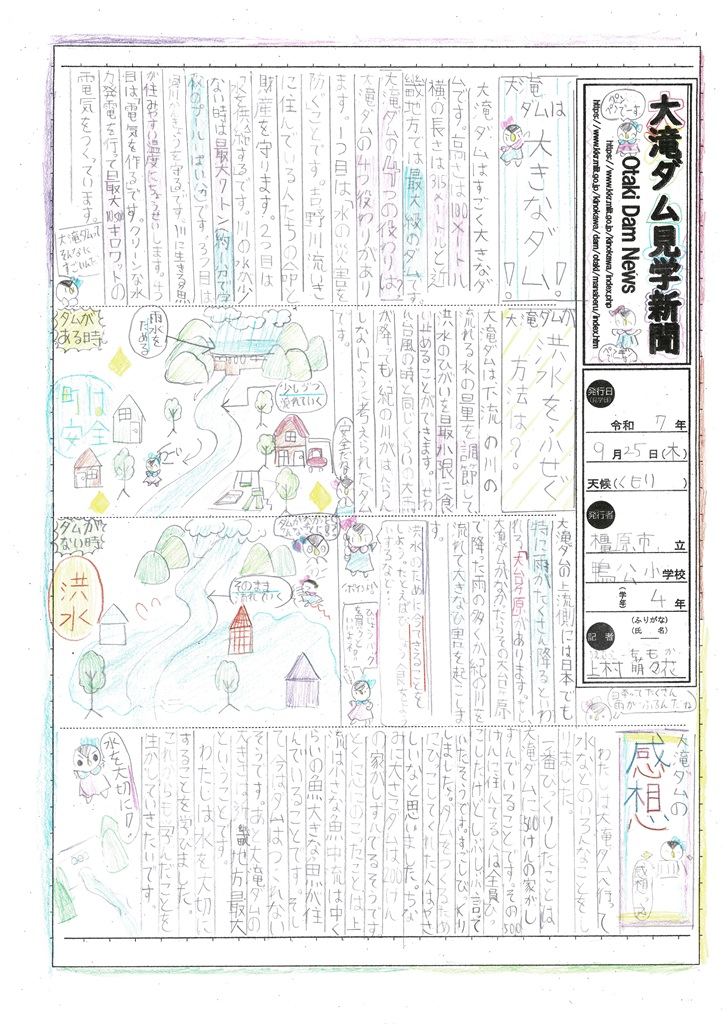 大滝ダム見学新聞
Otaki Dam News
https://www.kkr.mlit.go.jp/kinokawa/index.php
https://www.kkr.mlit.go.jp/kinokawa/dam/otaki/manaberu/index.htm
発行日
(見学日)
令和 7 年
9月25日(木)
天候(くもり)
発行者
橿原市 立
鴨公小 学校
(学年) 4 年
記者
(ふりがな)
(氏 名)
上村 萌々花
大滝ダムは
大きなダム!!
大滝ダムはすごく大きなダ
ムです。高さは100メートル
横の長さは315メートルと近
畿地方では最大級のダムです。
大滝ダムの4つの役わりは?
大滝ダムの4つ役わりがあり
ます。1つ目は水の害を
防ぐことです。吉野川流いき
に住んでいる人たちの命と
財産を守ります。2つ目は
水を供給するです。川の水が少
ない時は最大7トン(約1分で学
校のプールいっぱい分)です。3つ目は
が住みやすい温度にちょうせいします。4つ
目は電気を作ろうです。クリーンな水
力発電を行って最大10500キロワットの
電気をつくっています。
大滝ダムって
そんなに
すごいんだ
大滝ダムが
洪水をふせぐ
方法は?。
大滝ダムは下流の川の
流れる水の量を調節して、
洪水のひがいを最小限に食
い止めることができます。せわ
た台風の時と同じくらいの大雨
が降っても紀の川がはんらん
しないように考えられたダム
です。
安全だな
ダムが
ある時
雨水を
ためる
少しずつ
流れていく
町は
安全
大滝ダムの上流側には日本でも
特に雨がたくさん降るとい
われる「大台ヶ原」があります。
大滝ダムがなかったらその大台ヶ原
で降った雨の多くが紀の川を
流れて大きなひ害を起こしま
す。
洪水のために今できることを
しよう。
ダムが
ない時
そのまま
流れていく
洪水
日本ってたくさん
雨がふるんだね
大滝ダムの
感想
わたしは大滝ダムへ行って
水などのいろんなことをし
りました。
一番びっくりしたことは
大滝ダムに500けんの家がし
ずんでいることです。その500
けんに住んでる人は全員ひっ
こしたけどしぶしぶ言って
いたそうです。すごしびっくり
しました。ダムをつくるため
にひっこしてくれた人はやさ
しいなと思いました。ちな
みに大きこダムは200けん
の家がしずんでるそうです
とくに心にのこったことは上
流は小さな魚中流は中く
らいの魚大きな魚が住
んでいることです。そし
て今はダムはつくれない
そうです。あと大滝ダムの
大きさは近畿地方最大
ということです。
わたしは水を大切に
することを学びました。
これからも学んだことを
生かしていきたいです。
水を大切に!!